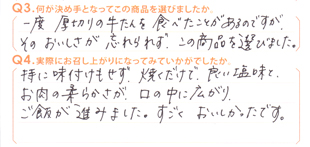 Q3.何が決め手となってこの商品を選びましたか。
一度 厚切りの牛たんを 食べたことがあるのですが
そのおいしさが 忘れられず、この商品を選びました。
Q4.実際にお召し上がりになってみていかがでしたか。
特に味付けもせず、焼くだけで、良い塩味で、
お肉の柔らかさが 口の中に広がり、
ご飯が 進みました。すごく おいしかったです。